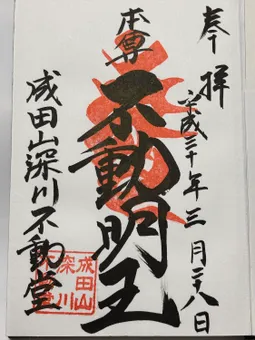 奉拝
平成三十年三月二八日
本尊
不動明王
成田山深川不動堂
成田山
深川